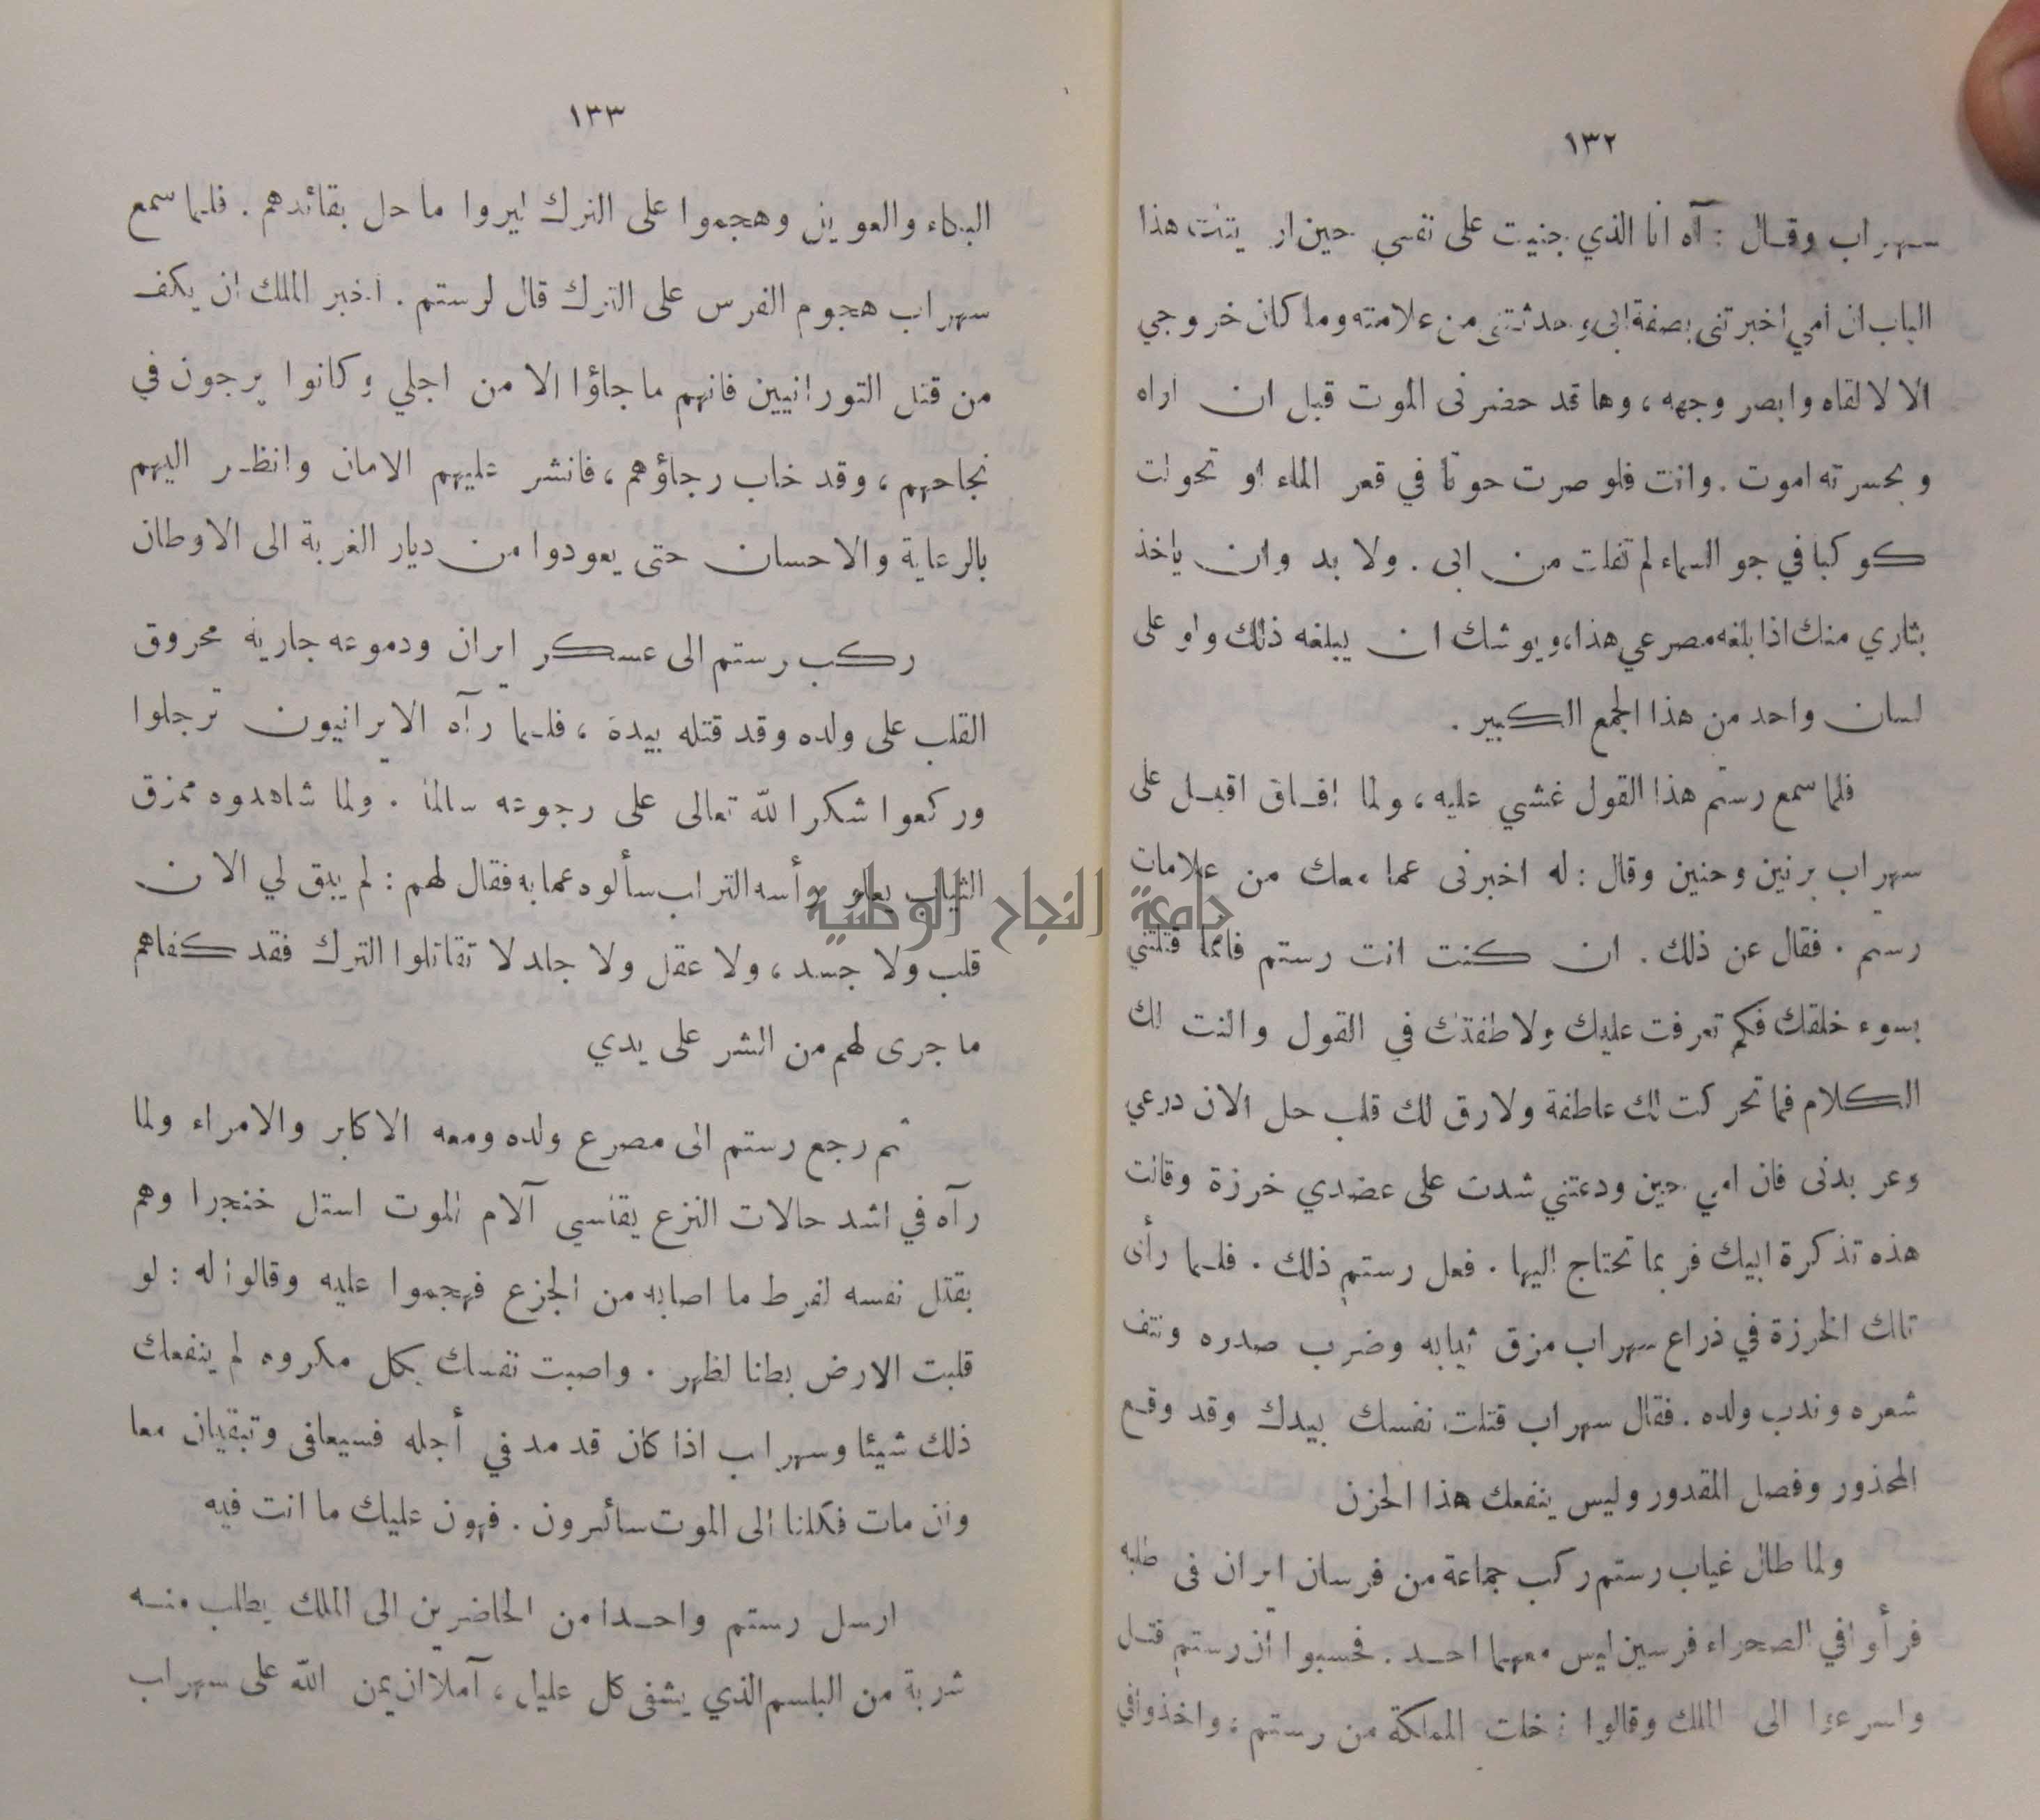 ١٣٢
سهراب وقال : آه انا الذي جنيت على نفسي حين ار يتنت هذا
الباب ان امي اخبرتنى بصفة ابى وحدثتنى من علامته وما كان خروجي
الا لالقاه وابصر وجهه ، وها قد حضرنى الموت قبل ان اراه
وبحسرته اموت . وانت فلو صرت حوتا في قعر الماء او تحولت
كوكبا في جو السماء لم تفلت من ابى . ولا بد وان ياخذ
بثاري منك اذا بلغه مصرعي هذا، ويوشك ان يبلغه ذلك ولو على
لسان واحد من هذا الجمع الكبير .
فلما سمع رستم هذا القول غشي عليه ، ولما افاق اقبل على
سهراب برنين وحنين وقال : له اخبرنى عما معك من علامات
رستم . فقال عن ذلك . ان كنت انت رستم فانما قتلتني
بسوء خلقك فكم تعرفت عليك ولاطفتك في القول والنت لك
الكلام فما تحركت لك عاطفة ولا رق لك قلب حل الان درعي
وعر بدنى فان امي حين ودعتني شدت على عضدي خرزة وقالت
هذه تذكرة ابيك فربما تحتاج اليها . فعل رستم ذلك . فلما رأى
تلك الخرزة في ذراع سهراب مزق ثيابه وضرب صدره ونتف
شعره وندب ولده . فقال سهراب قتلت نفسك بيدك وقد وقع
المحذور وفصل المقدور وليس ينفعك هذا الحزن
ولما طال غياب رستم ركب جماعة من فرسان ايران فى طلبه
فرأوا في الصحراء فرسين ليس معهما احد . فحسبوا ان رستم قتل
واسرعوا الى الملك وقالوا : خلت المملكة من رستم ، واخذوا في
١٣٣
البكاء والعويل وهجموا على الترك ليروا ما حل بقائدهم . فلما سمع
سهراب هجوم الفرس على الترك قال لرستم . اخبر الملك ان يكف
من قتل التورانيين فانهم ما جاؤا الا من اجلي وكانوا يرجون في
نجاحهم ، وقد خاب رجاؤهم ، فانشر عليهم الامان وانظر اليهم
بالرعاية والاحسان حتى يعودوا من ديار الغربة الى الاوطان
ركب رستم الى عسكر ايران ودموعه جارية محروق
القلب على ولده وقد قتله بيده ، فلما رآه الايرانيون ترجلوا
وركعوا شكرا لله تعالى على رجوعه سالما . ولما شاهدوه ممزق
الثياب يعلو رأسه التراب سألوه عما به فقال لهم : لم يبق لي الان
قلب ولا جسد ، ولا عقل ولا جلد لا تقاتلوا الترك فقد كفاهم
ما جرى لهم من الشر على يدي
ثم رجع رستم الى مصرع ولده ومعه الاكابر والامراء ولما
رآه في اشد حالات النزع يقاسي آلام الموت استل خنجرا وهم
بقتل نفسه لفرط ما اصابه من الجزع فهجموا عليه وقالوا له : لو
قلبت الارض بطنا لظهر . واصبت نفسك بكل مكروه لم ينفعك
ذلك شيئا وسهراب اذا كان قد مد في أجله فسيعافى وتبقيان معا
وان مات فكلنا الى الموت سائرون . فهون عليك ما انت فيه
ارسل رستم واحدا من الحاضرين الى الملك يطلب منه
شربة من البلسم الذي يشفى كل عليل ، آملا ان يمن الله على سهراب
جامعة النجاح الوطنية